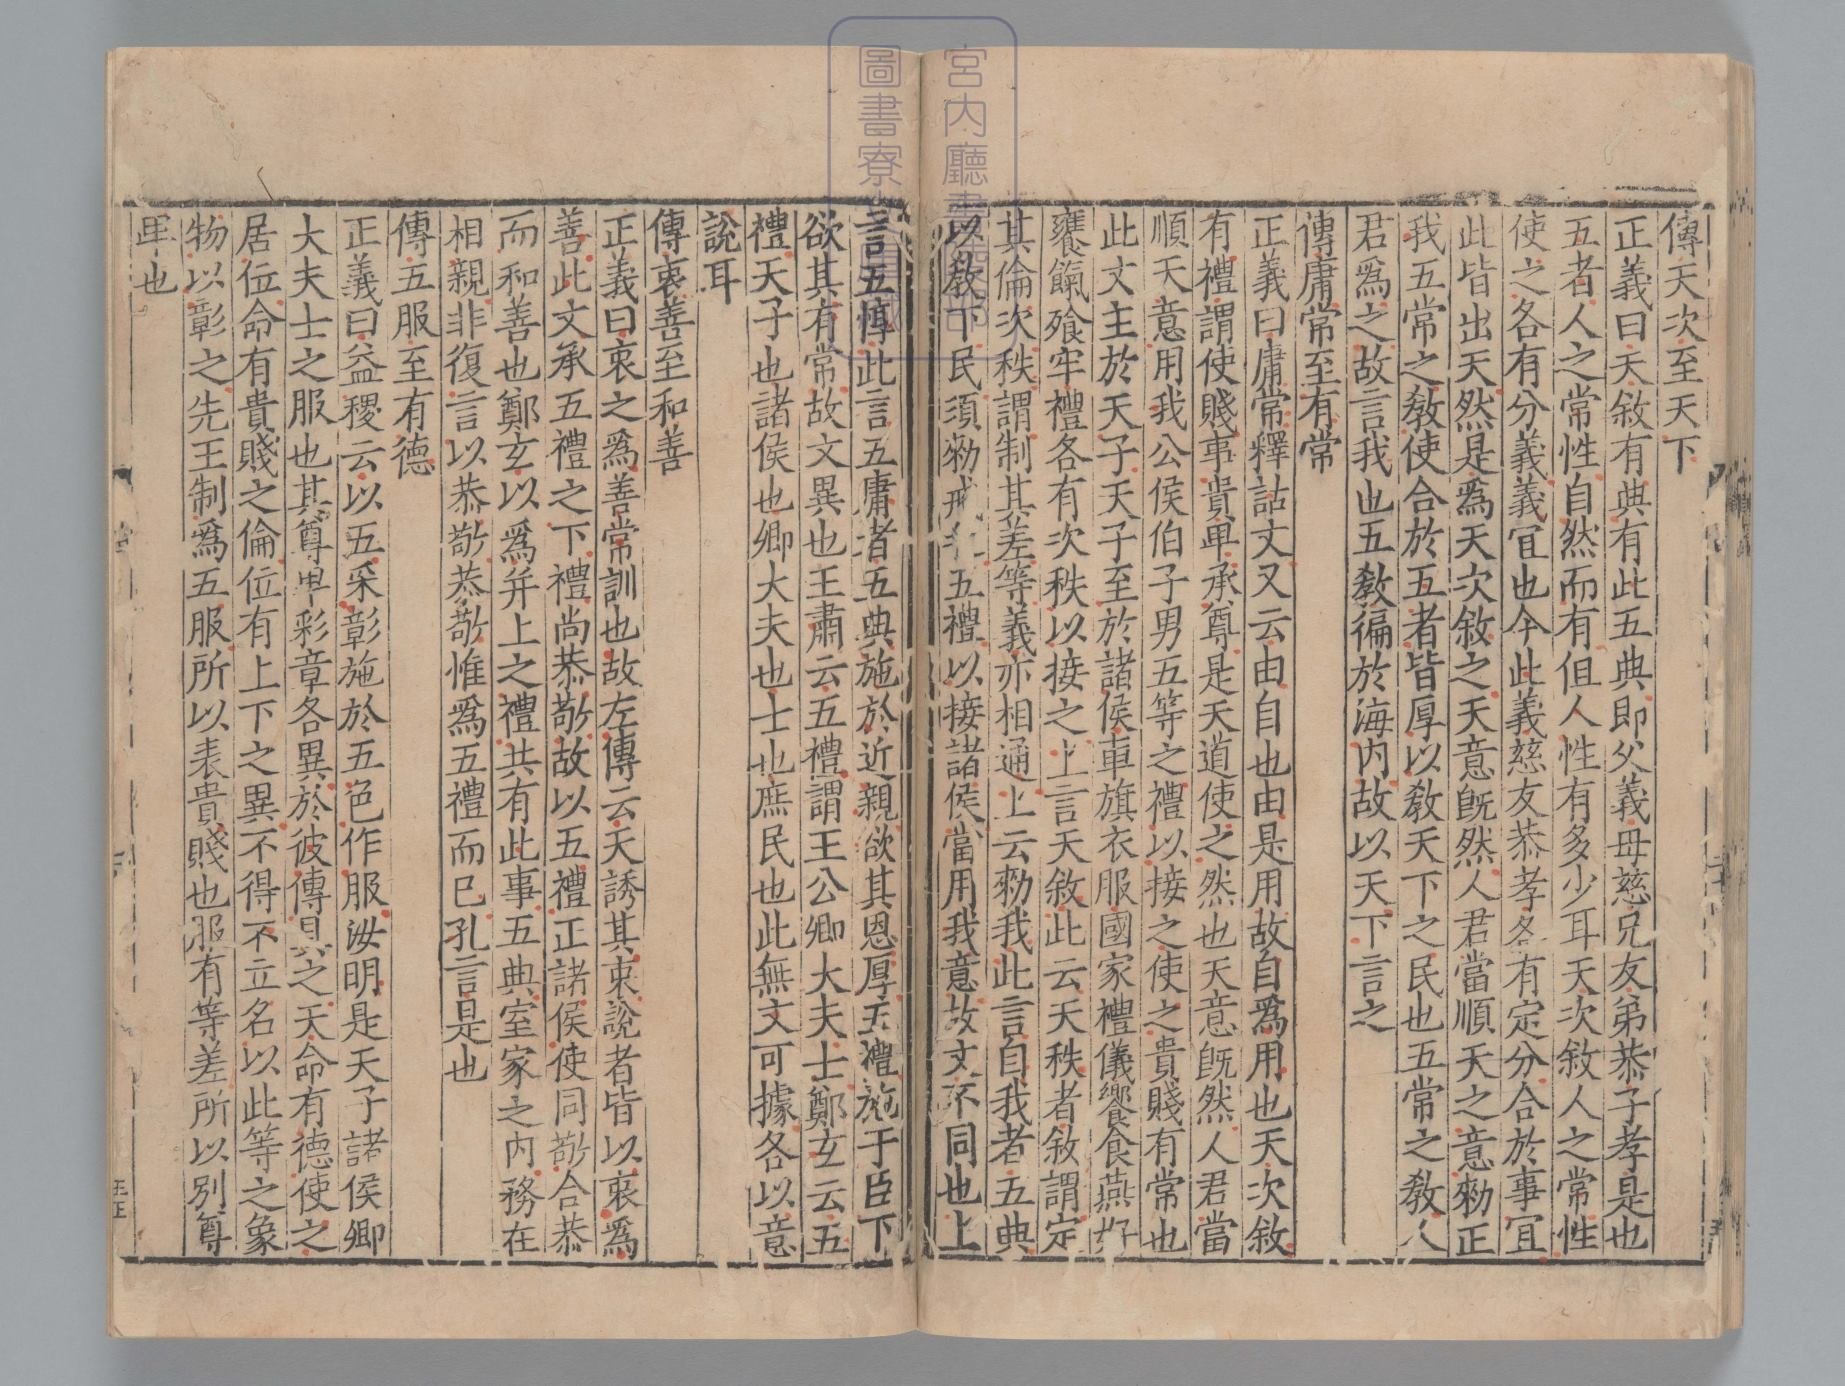 傳天次至天下
正義曰天敘有典有此五典即父義母慈兄友弟恭子孝是也
五者人之常性自然而有但人性有多少耳天次敘人之常性
使之各有分義義宜也今此義慈友恭孝各有定分合於事宜
此皆出天然是爲天次敘之天意旣然人君當順天之意勑正
我五常之敎使合於五者皆厚以敎天下之民也五常之敎人
君爲之故言我也五敎徧於海内故以天下言之
傳庸常至有常
正義曰庸常釋詁文又云由自也由是用故自爲用也天次敘
有禮謂使賤事貴卑承尊是天道使之然也天意旣然人君當
順天意用我公侯伯子男五等之禮以接之使之貴賤有常也
此文主於天子天子至於諸侯車旗衣服國家禮儀饗食燕好
饔餼飱牢禮各有次秩以接之上言天敘此云天秩者敘謂定
其倫次秩謂制其差等義亦相通上云勑我此言自我者五典
以敎下民須勑戒之五禮以接諸侯當用我意故文不同也上
言五惇此言五庸者五典施於近親欲其恩厚五禮施于臣下
欲其有常故文異也王肅云五禮謂王公卿大夫士鄭玄云五
禮天子也諸侯也卿大夫也士也庶民也此無文可據各以意
說耳
傳衷善至和善
正義曰衷之爲善常訓也故左傳云天誘其衷說者皆以衷爲
善此文承五禮之下禮尚恭敬故以五禮正諸侯使同敬合恭
而和善也鄭玄以爲并上之禮共有此事五典室家之内務在
相親非復言以恭敬恭敬惟爲五禮而已孔言是也
傳五服至有德
正義曰益稷云以五采彰施於五色作服汝明是天子諸侯卿
大夫士之服也其尊卑彩章各異於彼傳具之天命有德使之
居位命有貴賤之倫位有上下之異不得不立名以此等之象
物以彰之先王制爲五服所以表貴賤也服有等差所以別尊
卑也
宮内廳書陵部
圖書寮